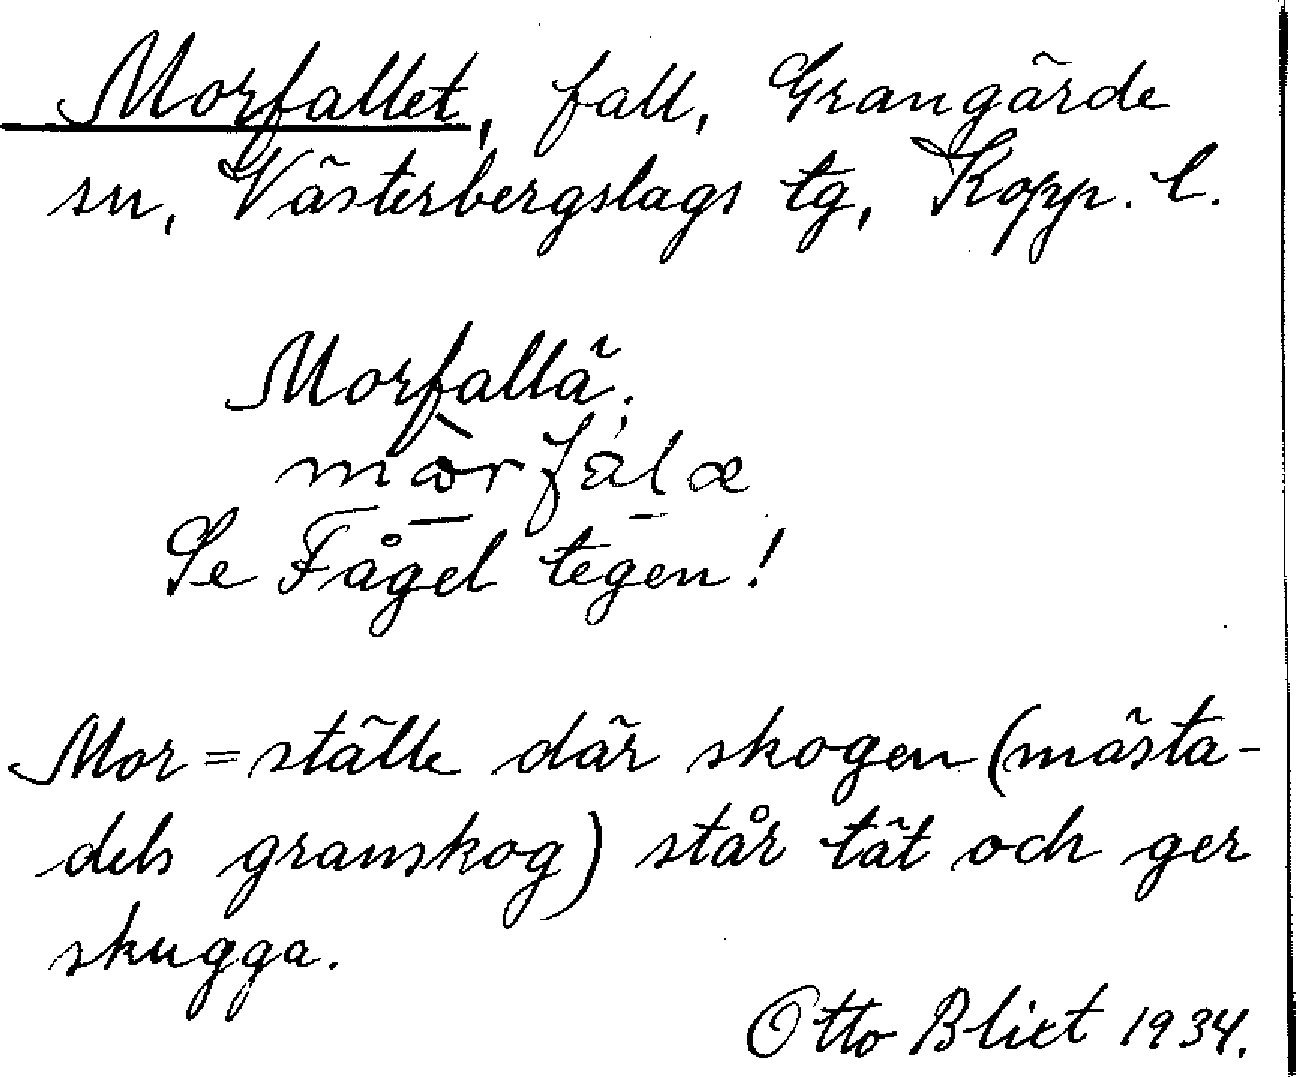 Morfallet, fall, Grangärde
sn, Västerbergslags tg, Kopp. l.
Morfallä.
Se Fågel tegen!
Mor = ställe där skogen (mästa-
dels granskog) står tät och ger
skugga.
Otto Blixt 1934.